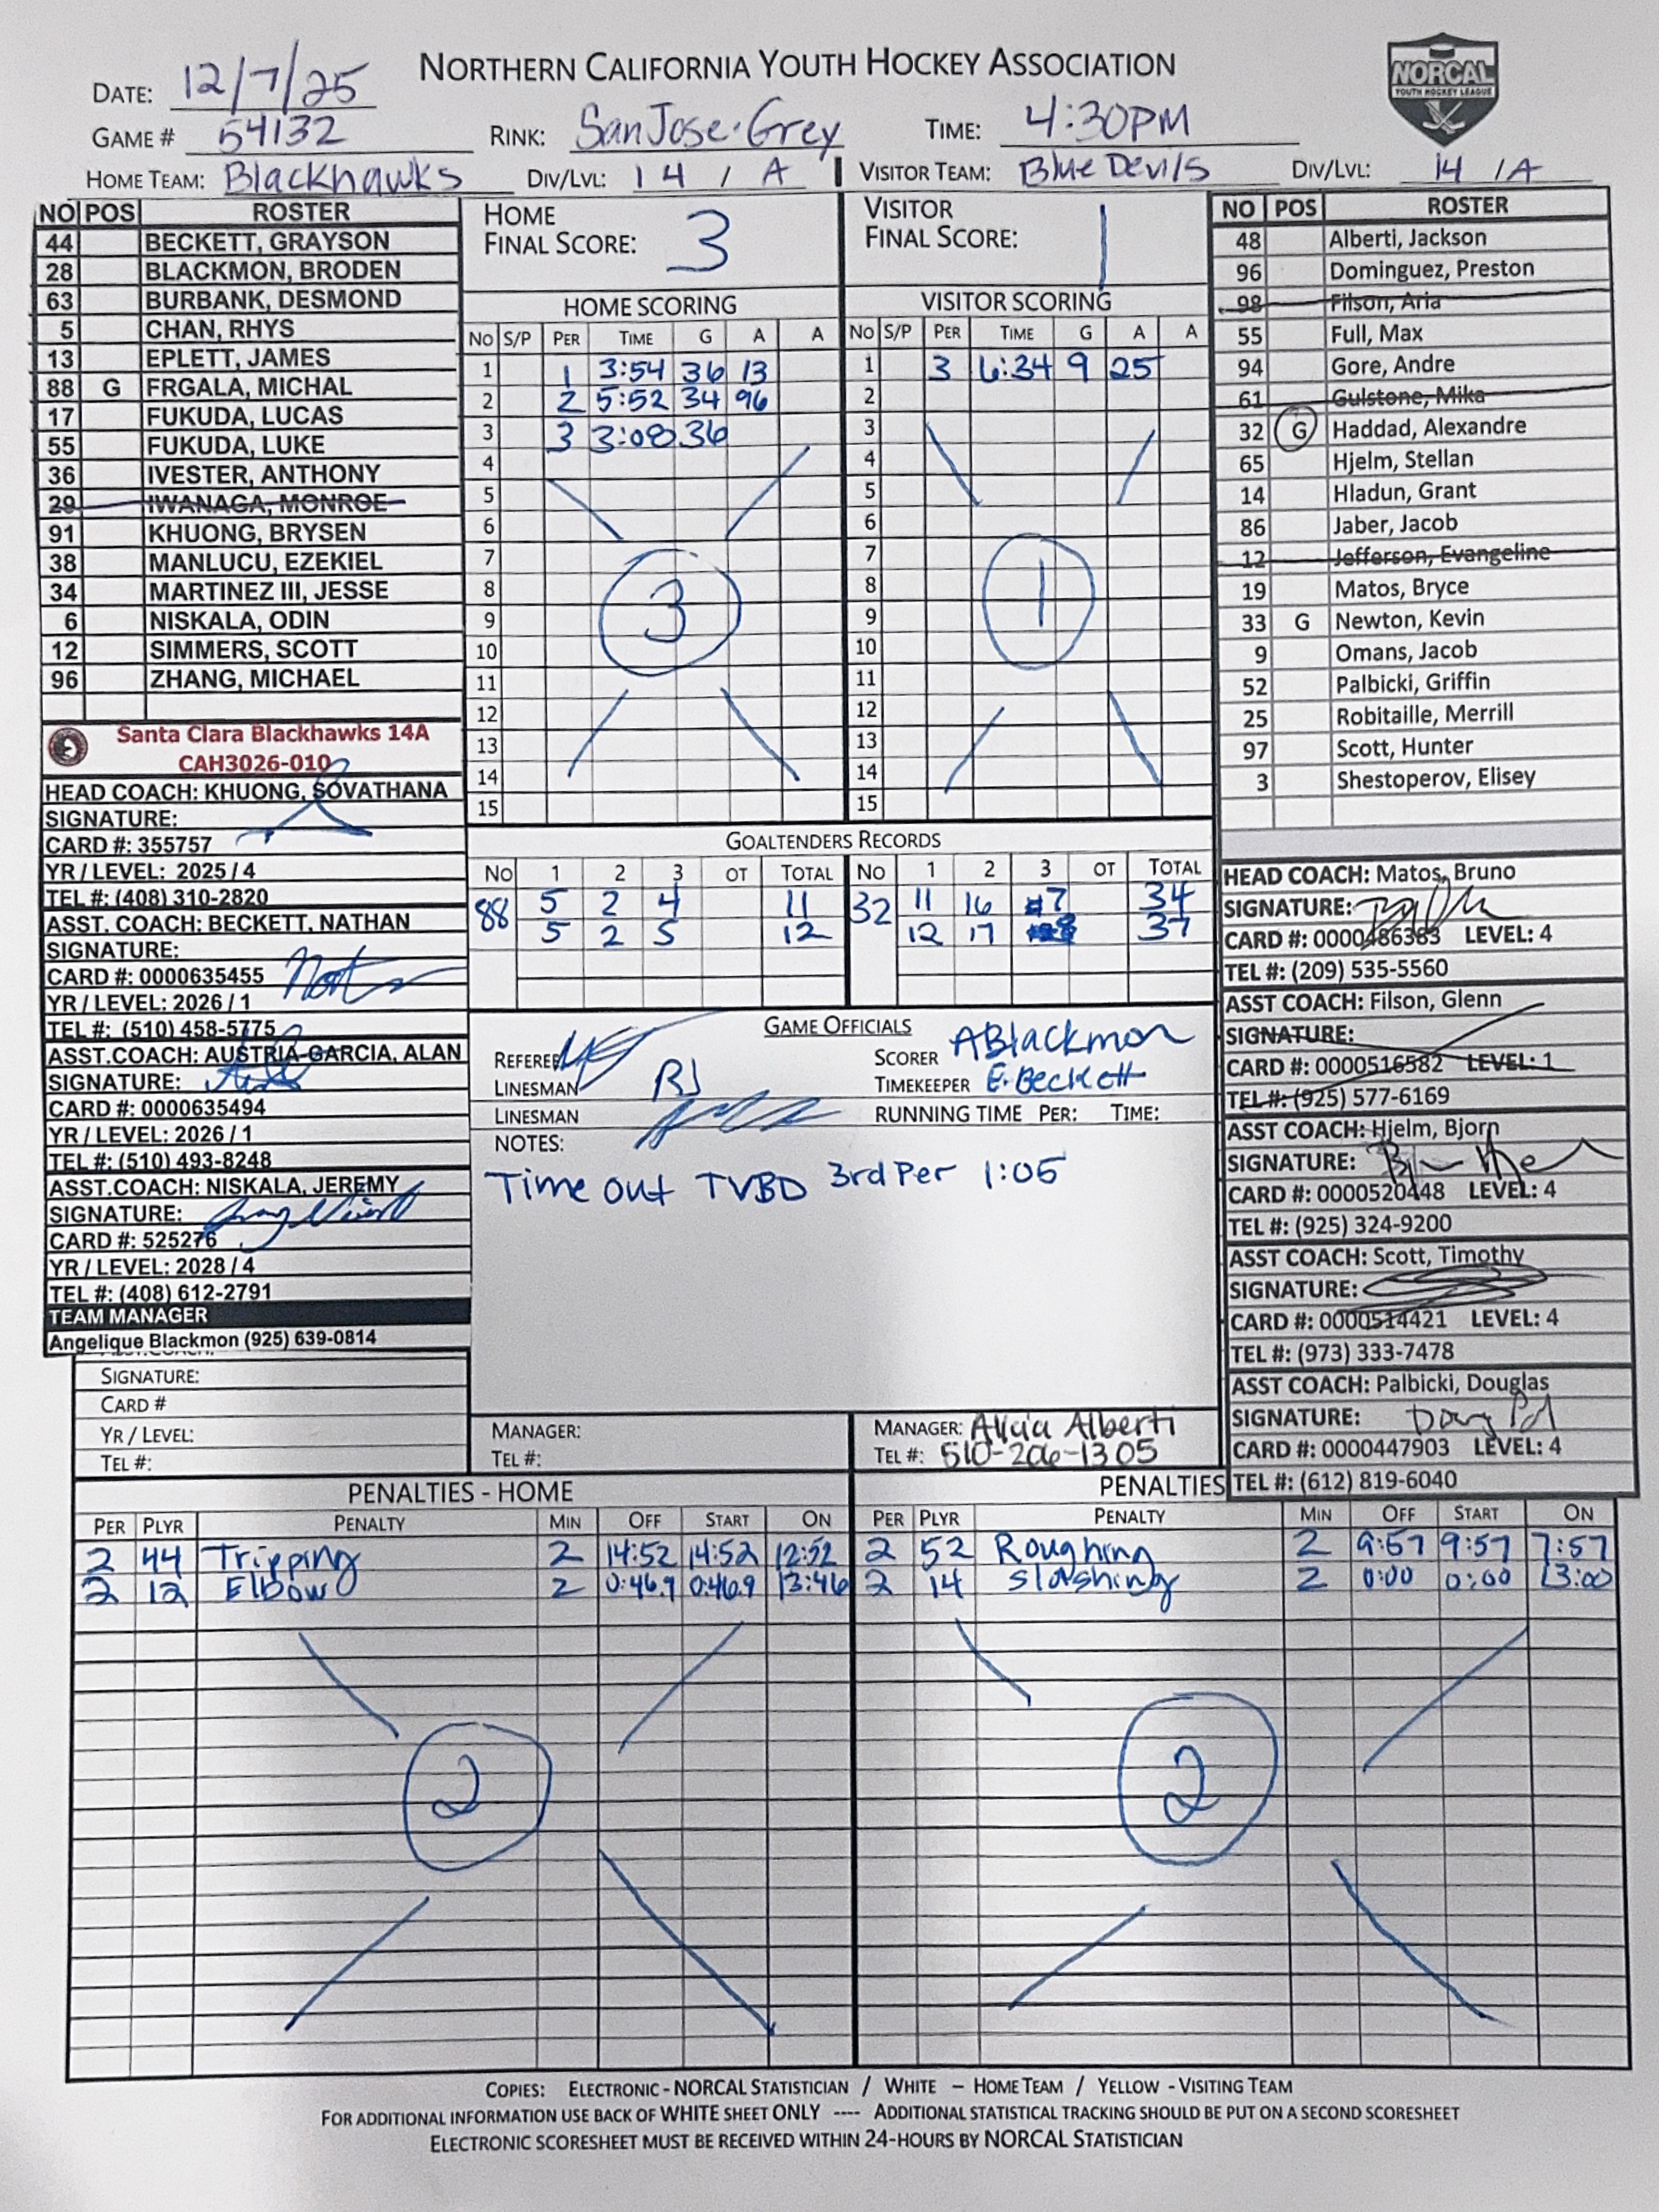 NORTHERN CALIFORNIA YOUTH HOCKEY ASSOCIATION
NORCAL
YOUTH HOCKEY LEAGUE
DATE: 12/7/25
GAME # 54132 RINK: San Jose · Grey TIME: 4:30PM
HOME TEAM: Blackhawks DIV/LVL: 14 / A VISITOR TEAM: Blue Devils DIV/LVL: 14 / A
NO POS ROSTER
44 BECKETT, GRAYSON
28 BLACKMON, BRODEN
63 BURBANK, DESMOND
5 CHAN, RHYS
13 EPLETT, JAMES
88 G FRGALA, MICHAL
17 FUKUDA, LUCAS
55 FUKUDA, LUKE
36 IVESTER, ANTHONY
29 IWANAGA, MONROE
91 KHUONG, BRYSEN
38 MANLUCU, EZEKIEL
34 MARTINEZ III, JESSE
6 NISKALA, ODIN
12 SIMMERS, SCOTT
96 ZHANG, MICHAEL
Santa Clara Blackhawks 14A
CAH3026-010
HEAD COACH: KHUONG, SOVATHANA
SIGNATURE:
CARD #: 355757
YR / LEVEL: 2025 / 4
TEL #: (408) 310-2820
ASST. COACH: BECKETT, NATHAN
SIGNATURE:
CARD #: 0000635455
YR / LEVEL: 2026 / 1
TEL #: (510) 458-5775
ASST.COACH: AUSTRIA-GARCIA, ALAN
SIGNATURE:
CARD #: 0000635494
YR / LEVEL: 2026 / 1
TEL #: (510) 493-8248
ASST.COACH: NISKALA, JEREMY
SIGNATURE:
CARD #: 525276
YR / LEVEL: 2028 / 4
TEL #: (408) 612-2791
TEAM MANAGER
Angelique Blackmon (925) 639-0814
SIGNATURE:
CARD #
YR / LEVEL:
TEL #:
HOME
FINAL SCORE: 3
HOME SCORING
NO S/P PER TIME G A A
1 1 3:54 36 13
2 2 5:52 34 96
3 3 3:08 36
4
5
6
7
8
9
10
11
12
13
14
15
3
VISITOR
FINAL SCORE: 1
VISITOR SCORING
NO S/P PER TIME G A A
1 3 6:34 9 25
2
3
4
5
6
7
8
9
10
11
12
13
14
15
1
GOALTENDERS RECORDS
NO 1 2 3 OT TOTAL NO 1 2 3 OT TOTAL
88 5 2 4 11 32 11 16 7 34
5 2 5 12 12 17 8 37
GAME OFFICIALS
REFEREE
SCORER ABlackmon
LINESMAN RJ
TIMEKEEPER E. Beckett
LINESMAN
RUNNING TIME PER: TIME:
NOTES:
Time out TVBD 3rd Per 1:05
MANAGER:
TEL #:
MANAGER: Alicia Alberti
TEL #: 510-206-1305
NO POS ROSTER
48 Alberti, Jackson
96 Dominguez, Preston
98 Filson, Aria
55 Full, Max
94 Gore, Andre
61 Gulstone, Mika
32 G Haddad, Alexandre
65 Hjelm, Stellan
14 Hladun, Grant
86 Jaber, Jacob
12 Jefferson, Evangeline
19 Matos, Bryce
33 G Newton, Kevin
9 Omans, Jacob
52 Palbicki, Griffin
25 Robitaille, Merrill
97 Scott, Hunter
3 Shestoperov, Elisey
HEAD COACH: Matos, Bruno
SIGNATURE:
CARD #: 0000486383 LEVEL: 4
TEL #: (209) 535-5560
ASST COACH: Filson, Glenn
SIGNATURE:
CARD #: 0000516582 LEVEL: 1
TEL #: (925) 577-6169
ASST COACH: Hjelm, Bjorn
SIGNATURE:
CARD #: 0000520448 LEVEL: 4
TEL #: (925) 324-9200
ASST COACH: Scott, Timothy
SIGNATURE:
CARD #: 0000514421 LEVEL: 4
TEL #: (973) 333-7478
ASST COACH: Palbicki, Douglas
SIGNATURE:
CARD #: 0000447903 LEVEL: 4
TEL #: (612) 819-6040
PENALTIES - HOME
PER PLYR PENALTY MIN OFF START ON
2 44 Tripping 2 14:52 14:52 12:52
2 12 Elbow 2 0:46.9 0:46.9 13:46
2
PENALTIES
PER PLYR PENALTY MIN OFF START ON
2 52 Roughing 2 9:57 9:57 7:57
2 14 Slashing 2 0:00 0:00 13:00
2
COPIES: ELECTRONIC - NORCAL STATISTICIAN / WHITE – HOME TEAM / YELLOW - VISITING TEAM
FOR ADDITIONAL INFORMATION USE BACK OF WHITE SHEET ONLY ---- ADDITIONAL STATISTICAL TRACKING SHOULD BE PUT ON A SECOND SCORESHEET
ELECTRONIC SCORESHEET MUST BE RECEIVED WITHIN 24-HOURS BY NORCAL STATISTICIAN